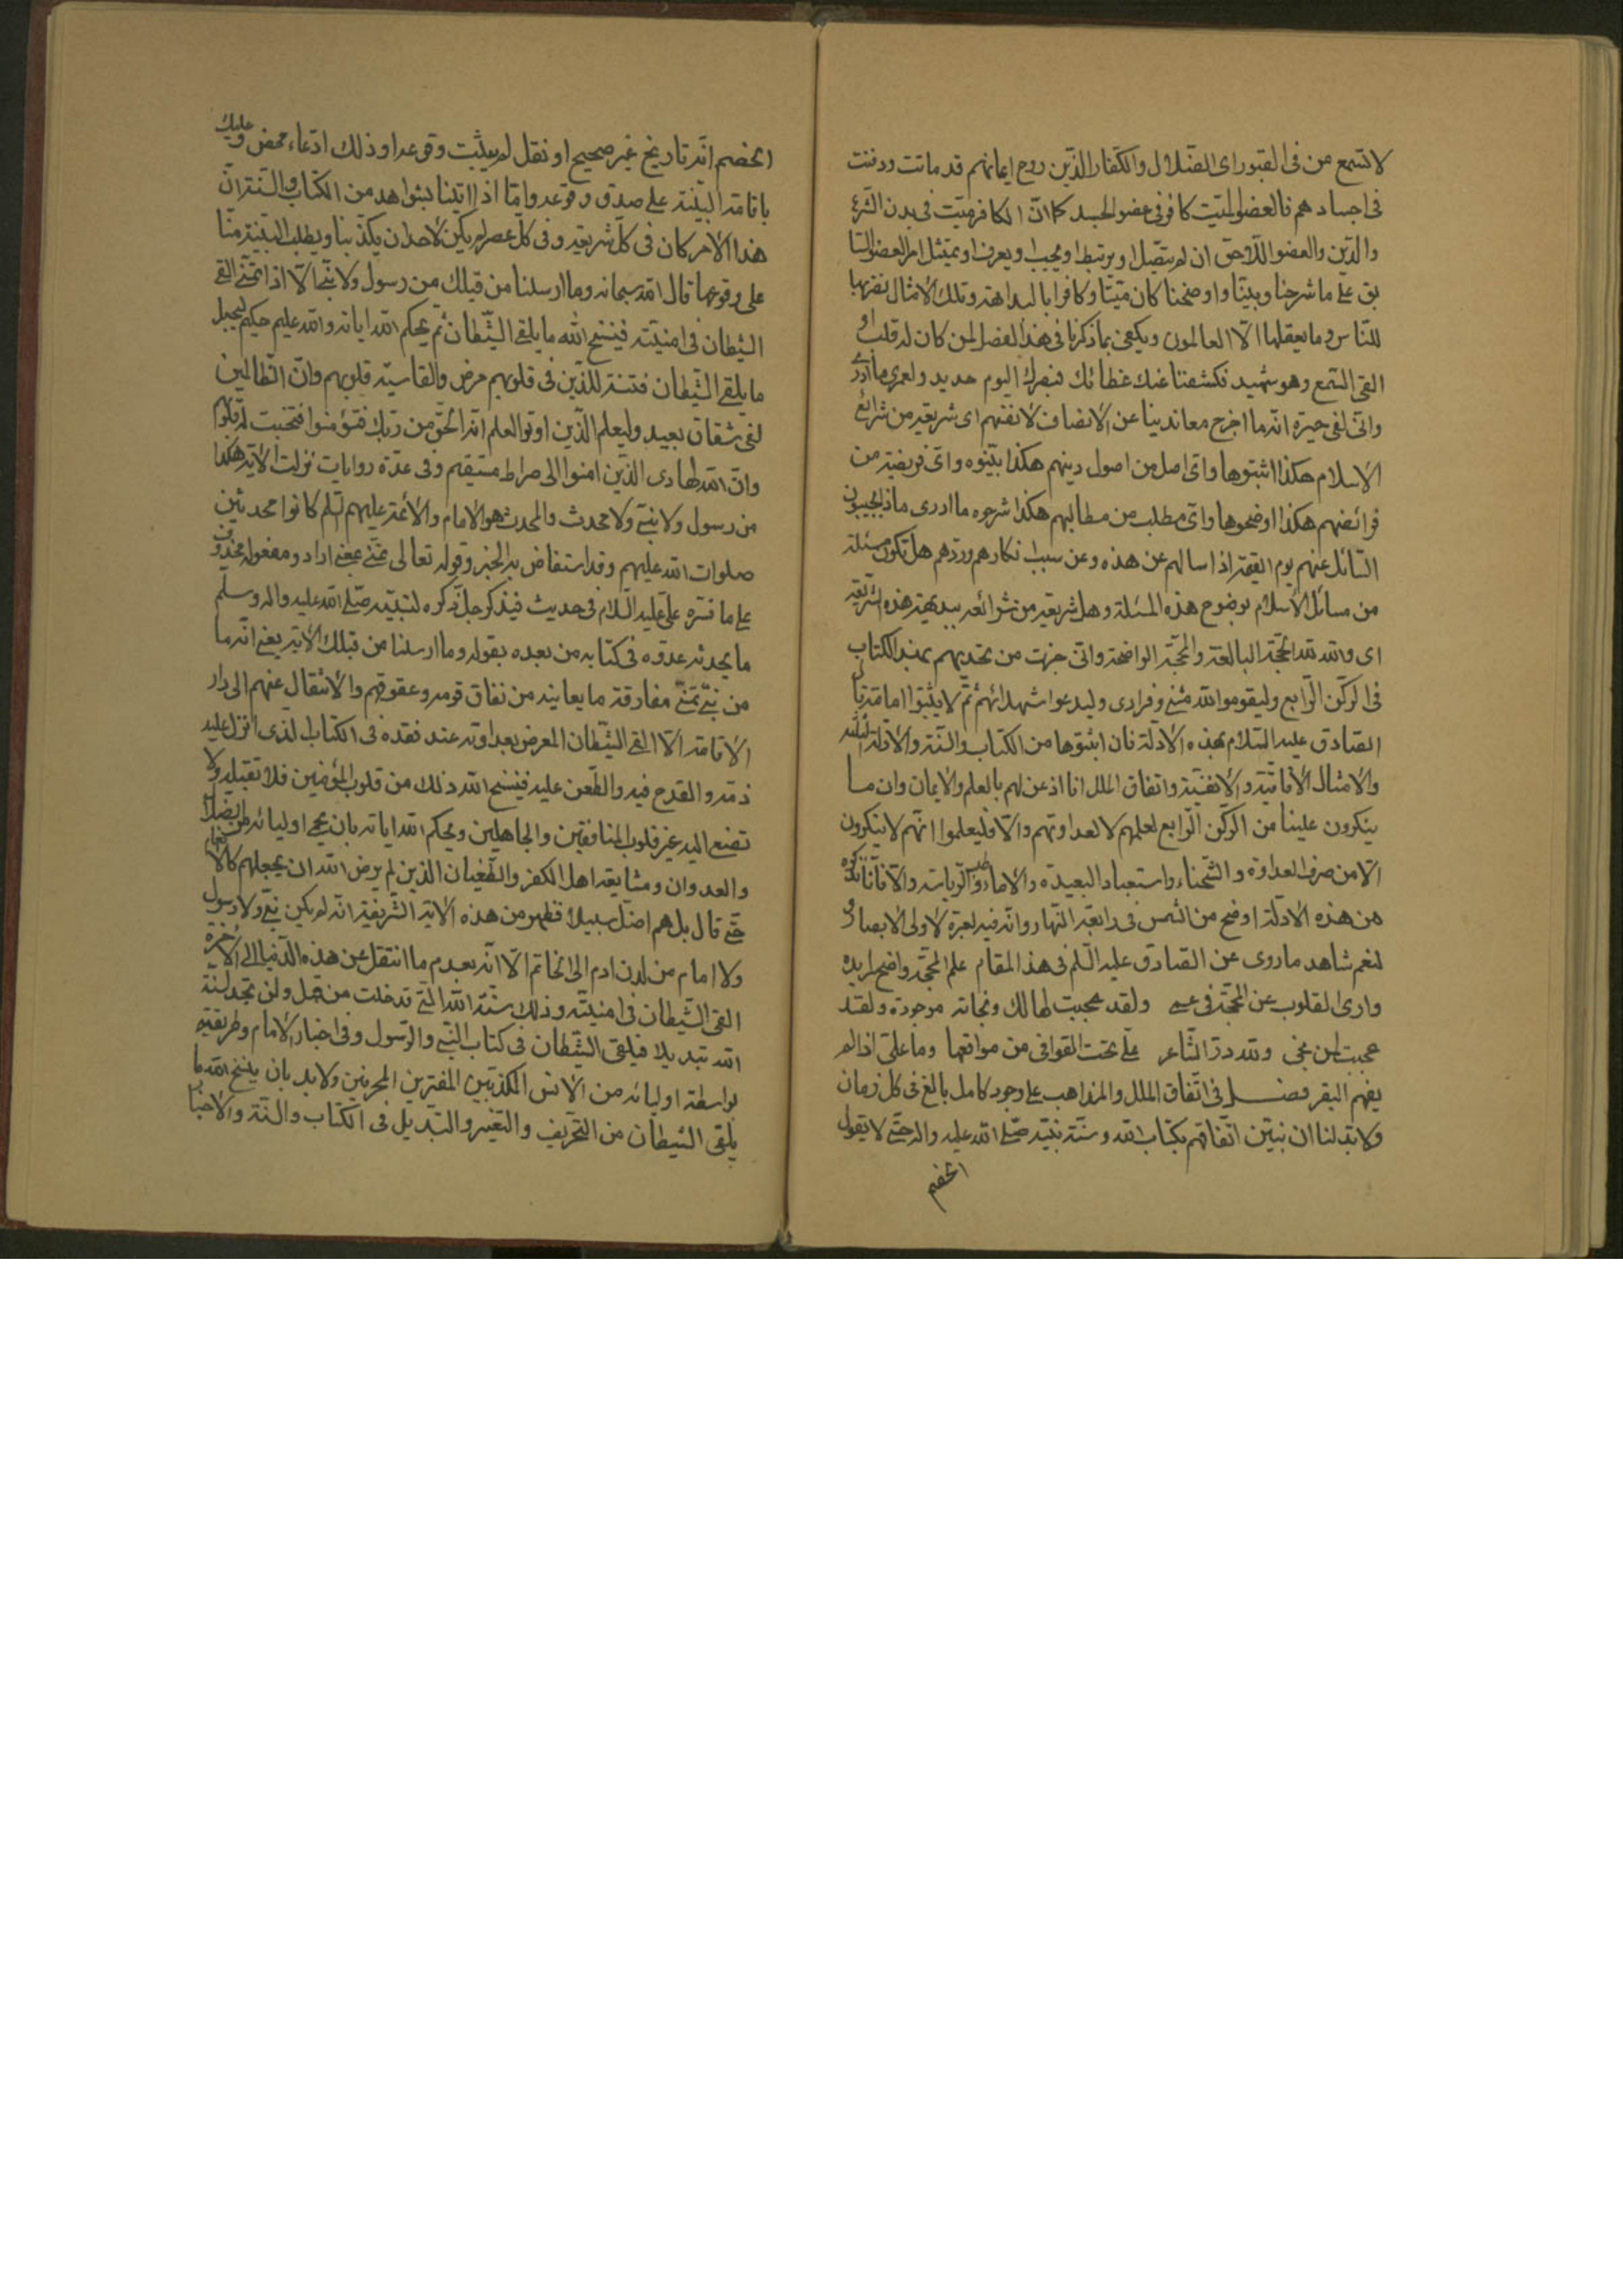 لا تسمع من فى القبور اى الضلال والكفار الذين روح ايمانهم قد ماتت ودفنت
فى اجسادهم فالعضو الميت كافر فى عضو الجسد كما ان الكافر ميت فى بدن الشرع
والدين والعضو اللاحق ان لم يتصل او يرتبط او يجيب او يعرف او يمتثل امر العضو السا
بق على ما شرحنا وبينا واوضحنا كان ميتا وكافرا بالبداهة وتلك الامثال نضربها
للناس وما يعقلها الا العالمون ويكفى بما ذكرنا فى هذا الفصل لمن كان له قلب او
القى السمع وهو شهيد فكشفنا عنك غطائك فبصرك اليوم حديد ولعمرى ما ادرى
وانى لفى حيرة انه ما اخرج معاندينا عن الانصاف لانفسهم اى شريعة من شرائع
الاسلام هكذا اثبتوها واى اصل من اصول دينهم هكذا بينوه واى فريضة من
فرائضهم هكذا اوضحوها واى مطلب من مطالبهم هكذا شرحوه ما ادرى ماذا يجيبون
السائل عنهم يوم القيمة اذا سالهم عن هذه وعن سبب انكارهم وردهم هل تكون مسئلة
من مسائل الاسلام بوضوح هذه المسئلة وهل شريعة من شرائعه ببديهة هذه الشريعة
اى والله لله الحجة البالغة والمحجة الواضحة وانى جزت من تحديهم بمثبه الكتاب
فى الركن الرابع وليقوموا لله مثنى وفرادى وليدعوا شهدائهم ثم لا يثبتوا امامة
الصادق عليه السلام بهذه الادلة فان اثبتوها من الكتاب والسنة والادلة
والامثال الافاقية والانفسية واتفاق الملل انا اذعن لهم بالعلم والايمان وان ما
ينكرون علينا من الركن الرابع لعلمهم لا لعداوتهم والا فليعلموا انهم لا ينكرون
الا من صرف العداوة والشحناء واستعباد البعيدة والاماء وطلب الرياسة والا فان
من هذه الادلة اوضح من الشمس فى رابعة النهار وانه فيه لعبرة لاولى الابصار و
لنعم شاهد ما روى عن الصادق عليه السلم فى هذا المقام علم المحجة واضح لمريده
وارى القلوب عن المحجة فى عمى ولقد عجبت لهالك ونجاته موجودة ولقد
عجبت لمن نجى ولله در الشاعر على نحت القوافى من مواقعها وما على اذا لم
يفهم البقر فصل فى اتفاق الملل والمذاهب على وجود كامل بالغ فى كل زمان
ولا بد لنا ان نبين اتفاقهم بكتاب الله وسنة نبيه صلى الله عليه واله حتى لا يقول
الخصم
الخصم انه تاريخ غير صحيح او نقل لم يثبت وقوعه او ذلك ادعاء محض وعليك
باقامة البينة على صدق وقوعه واما اذا اتينا بشواهد من الكتاب والسنة ان
هذا الامر كان فى كل شريعة وفى كل عصر لم يكن لاحد ان يكذبنا ويطلب البينة منا
على وقوعها قال الله سبحانه وما ارسلنا من قبلك من رسول ولا نبى الا اذا تمنى القى
الشيطان فى امنيته فينسخ الله ما يلقى الشيطان ثم يحكم الله اياته والله عليم حكيم ليجعل
ما يلقى الشيطان فتنة للذين فى قلوبهم مرض والقاسية قلوبهم وان الظالمين
لفى شقاق بعيد وليعلم الذين اوتوا العلم انه الحق من ربك فيؤمنوا فتخبت له قلوبهم
وان الله لهادى الذين امنوا الى صراط مستقيم وفى عدة روايات نزلت الاية هكذا
من رسول ولا نبى ولا محدث والمحدث هو الامام والائمة عليهم السلم كانوا محدثين
صلوات الله عليهم وقد استفاض به الخبر وقوله تعالى تمنى بمعنى اراد ومفعوله محذوف
على ما فسره على عليه السلام فى حديث فيذكر جل ذكره لنبيه صلى الله عليه واله وسلم
ما يحدثه عدوه فى كتابه من بعده بقوله وما ارسلنا من قبلك الاية يعنى انه ما
من نبى تمنى مفارقة ما يعاينه من نفاق قومه وعقوقهم والانتقال عنهم الى دار
الاقامة الا القى الشيطان المعرض بعداوته عند فقده فى الكتاب الذى انزل عليه
ذمه والقدح فيه والطعن عليه فينسخ الله ذلك من قلوب المؤمنين فلا تقبله ولا
تصغى اليه غير قلوب المنافقين والجاهلين ويحكم الله اياته بان يحمى اوليائه من الضلال
والعدوان ومشايعة اهل الكفر والطغيان الذين لم يرض الله ان يجعلهم كالانعام
حتى قال بل هم اضل سبيلا فظهر من هذه الاية الشريفة انه لم يكن نبى ولا رسول
ولا امام من لدن ادم الى الخاتم الا انه بعد ما انتقل عن هذه الدنيا الى الاخرة
القى الشيطان فى امنيته وذلك سنة الله التى قد خلت من قبل ولن تجد لسنة
الله تبديلا فيلقى الشيطان فى كتاب النبى والرسول وفى اخبار الامام وطريقته
بواسطة اوليائه من الانس المكذبين المفترين المحرفين ولا بد بان ينسخ الله ما
يلقى الشيطان من التحريف والتغيير والتبديل فى الكتاب والسنة والاخبار